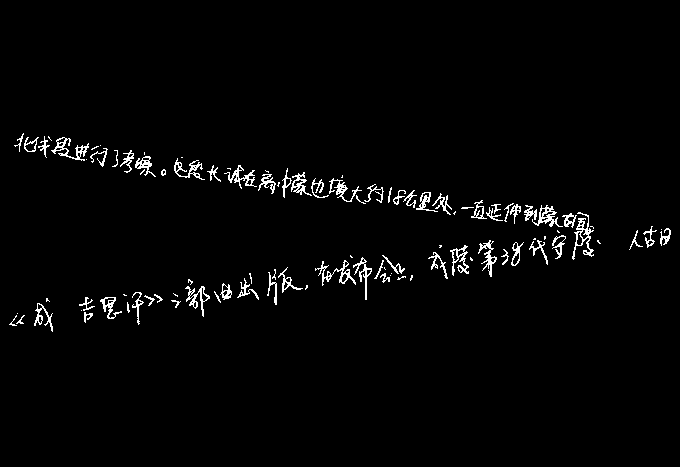 北线段进行了考察。这段长城在离中蒙边境大约18公里处,一直延伸到蒙古国。
《成吉思汗》三部曲出版,在发布会上,成陵第38代守陵人古日